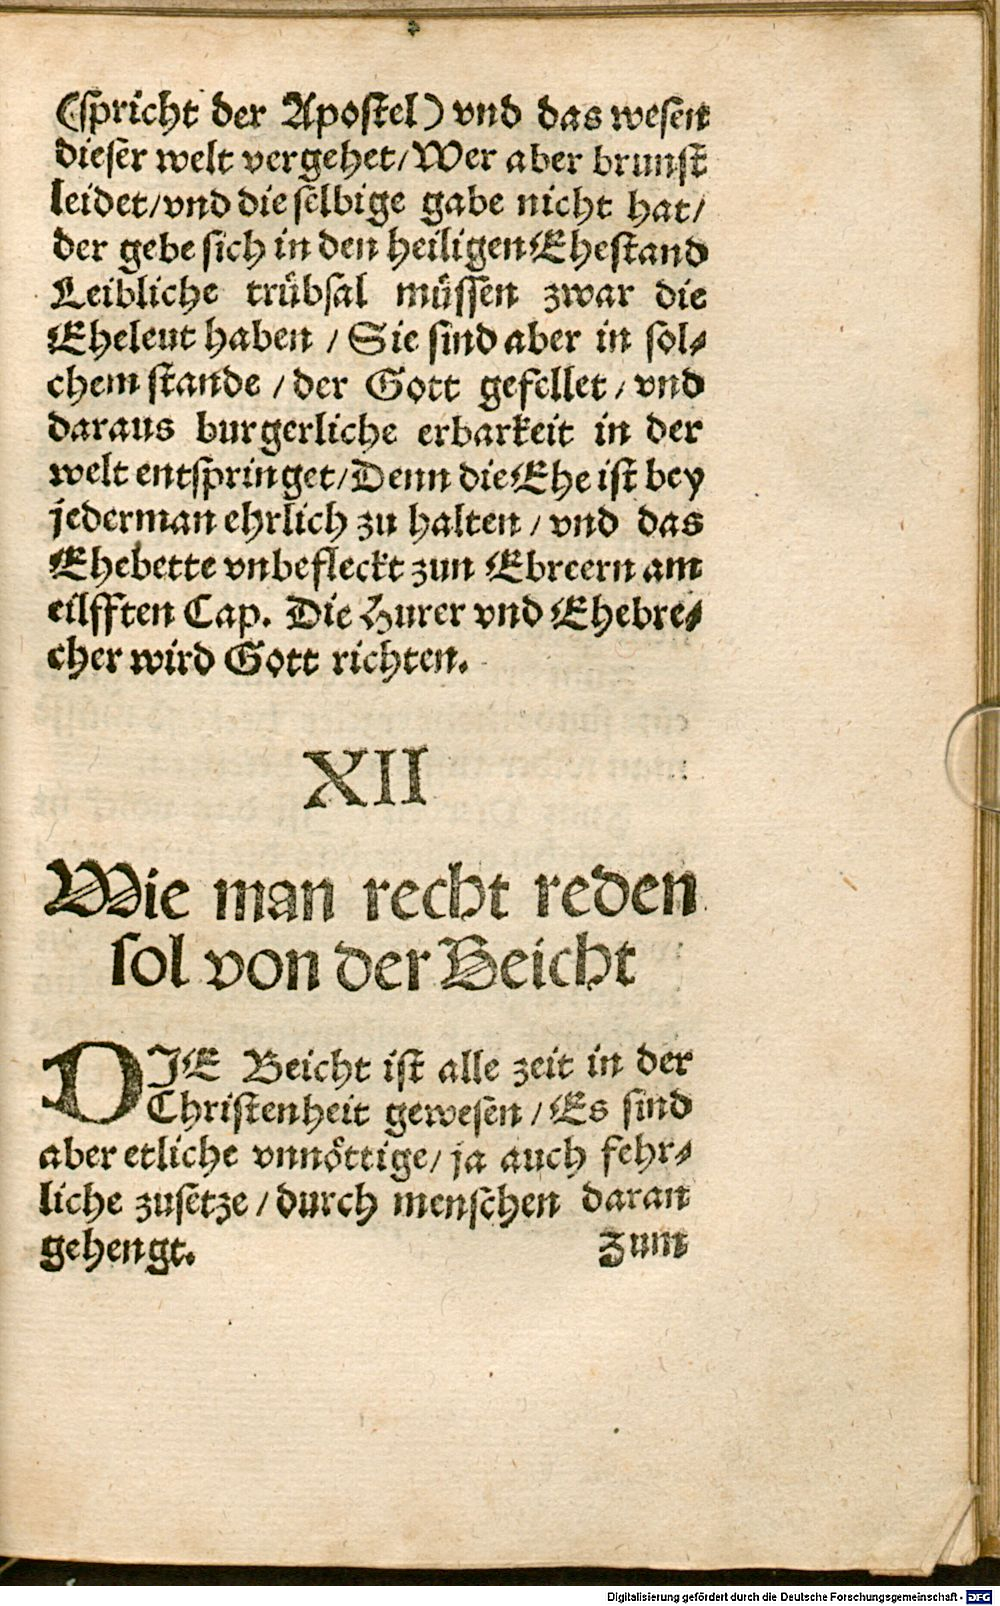 (spricht der Apostel) vnd das wesen
dieser welt vergehet/ Wer aber brunst
leidet/ vnd die selbige gabe nicht hat/
der gebe sich in den heiligen Ehestand
Leibliche trübsal müssen zwar die
Eheleut haben / Sie sind aber in sol⸗
chem stande / der Gott gefellet / vnd
daraus burgerliche erbarkeit in der
welt entspringet/ Denn die Ehe ist bey
jederman ehrlich zu halten / vnd das
Ehebette vnbefleckt zun Ebreern am
eilfften Cap. Die Hurer vnd Ehebre⸗
cher wird Gott richten.
XII
Wie man recht reden
sol von der Beicht
DIE Beicht ist alle zeit in der
Christenheit gewesen / Es sind
aber etliche vnnöttige/ ja auch fehr⸗
liche zusetze / durch menschen daran
gehengt. Zum
Digitalisierung gefördert durch die Deutsche Forschungsgemeinschaft - DFG